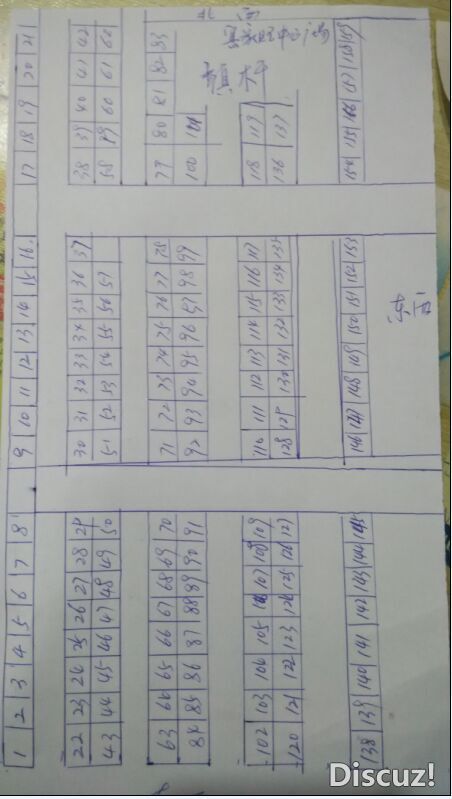 1 2 3 4 5 6 7 8 9 10 11 12 13 14 15 16 17 18 19 20 21
22 23 24 25 26 27 28 29 30 31 32 33 34 35 36 37 38 39 40 41 42
43 44 45 46 47 48 49 50 51 52 53 54 55 56 57 58 59 60 61 60
63 64 65 66 67 68 69 70 71 72 73 74 75 76 77 78 79 80 81 82 83
84 85 86 87 88 89 90 91 92 93 94 95 96 97 98 99 100 101
102 103 104 105 106 107 108 109 110 111 112 113 114 115 116 117 118 119
120 121 122 123 124 125 126 127 128 129 130 131 132 133 134 135 136 137
138 139 140 141 142 143 144 145 146 147 148 149 150 151 152 153 154 155 156 157 158 159
Discuz!